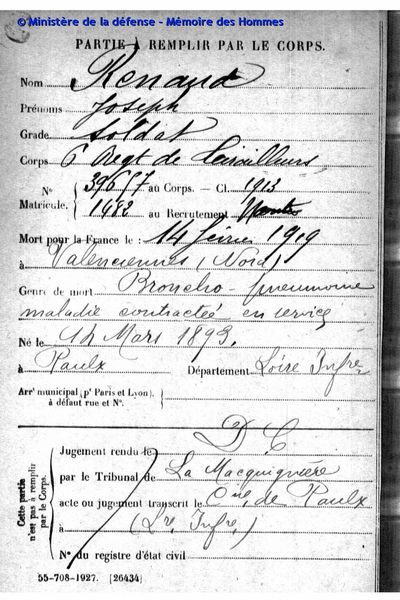 © Ministère de la défense - Mémoire des Hommes
PARTIE À REMPLIR PAR LE CORPS.
Nom Renaud
Prénoms Joseph
Grade soldat
Corps 6 Regt de Tirailleurs
N° 39657 au Corps. — Cl. 1913
Matricule. 1482 au Recrutement Nantes
Mort pour la France le : 14 février 1919
à Valenciennes (Nord)
Genre de mort Broncho-pneumonie
maladie contractée en service
Né le 14 Mars 1893.
à Paulx Département Loire Infre
Arrt municipal (pr Paris et Lyon),
à défaut rue et N°.
D C
Cette partie
n'est pas à remplir
par le Corps.
Jugement rendu le
par le Tribunal de La Macquignière
acte ou jugement transcrit le Cne de Paulx
à (Lre Infre)
N° du registre d'état civil
55-708-1927. [26434]